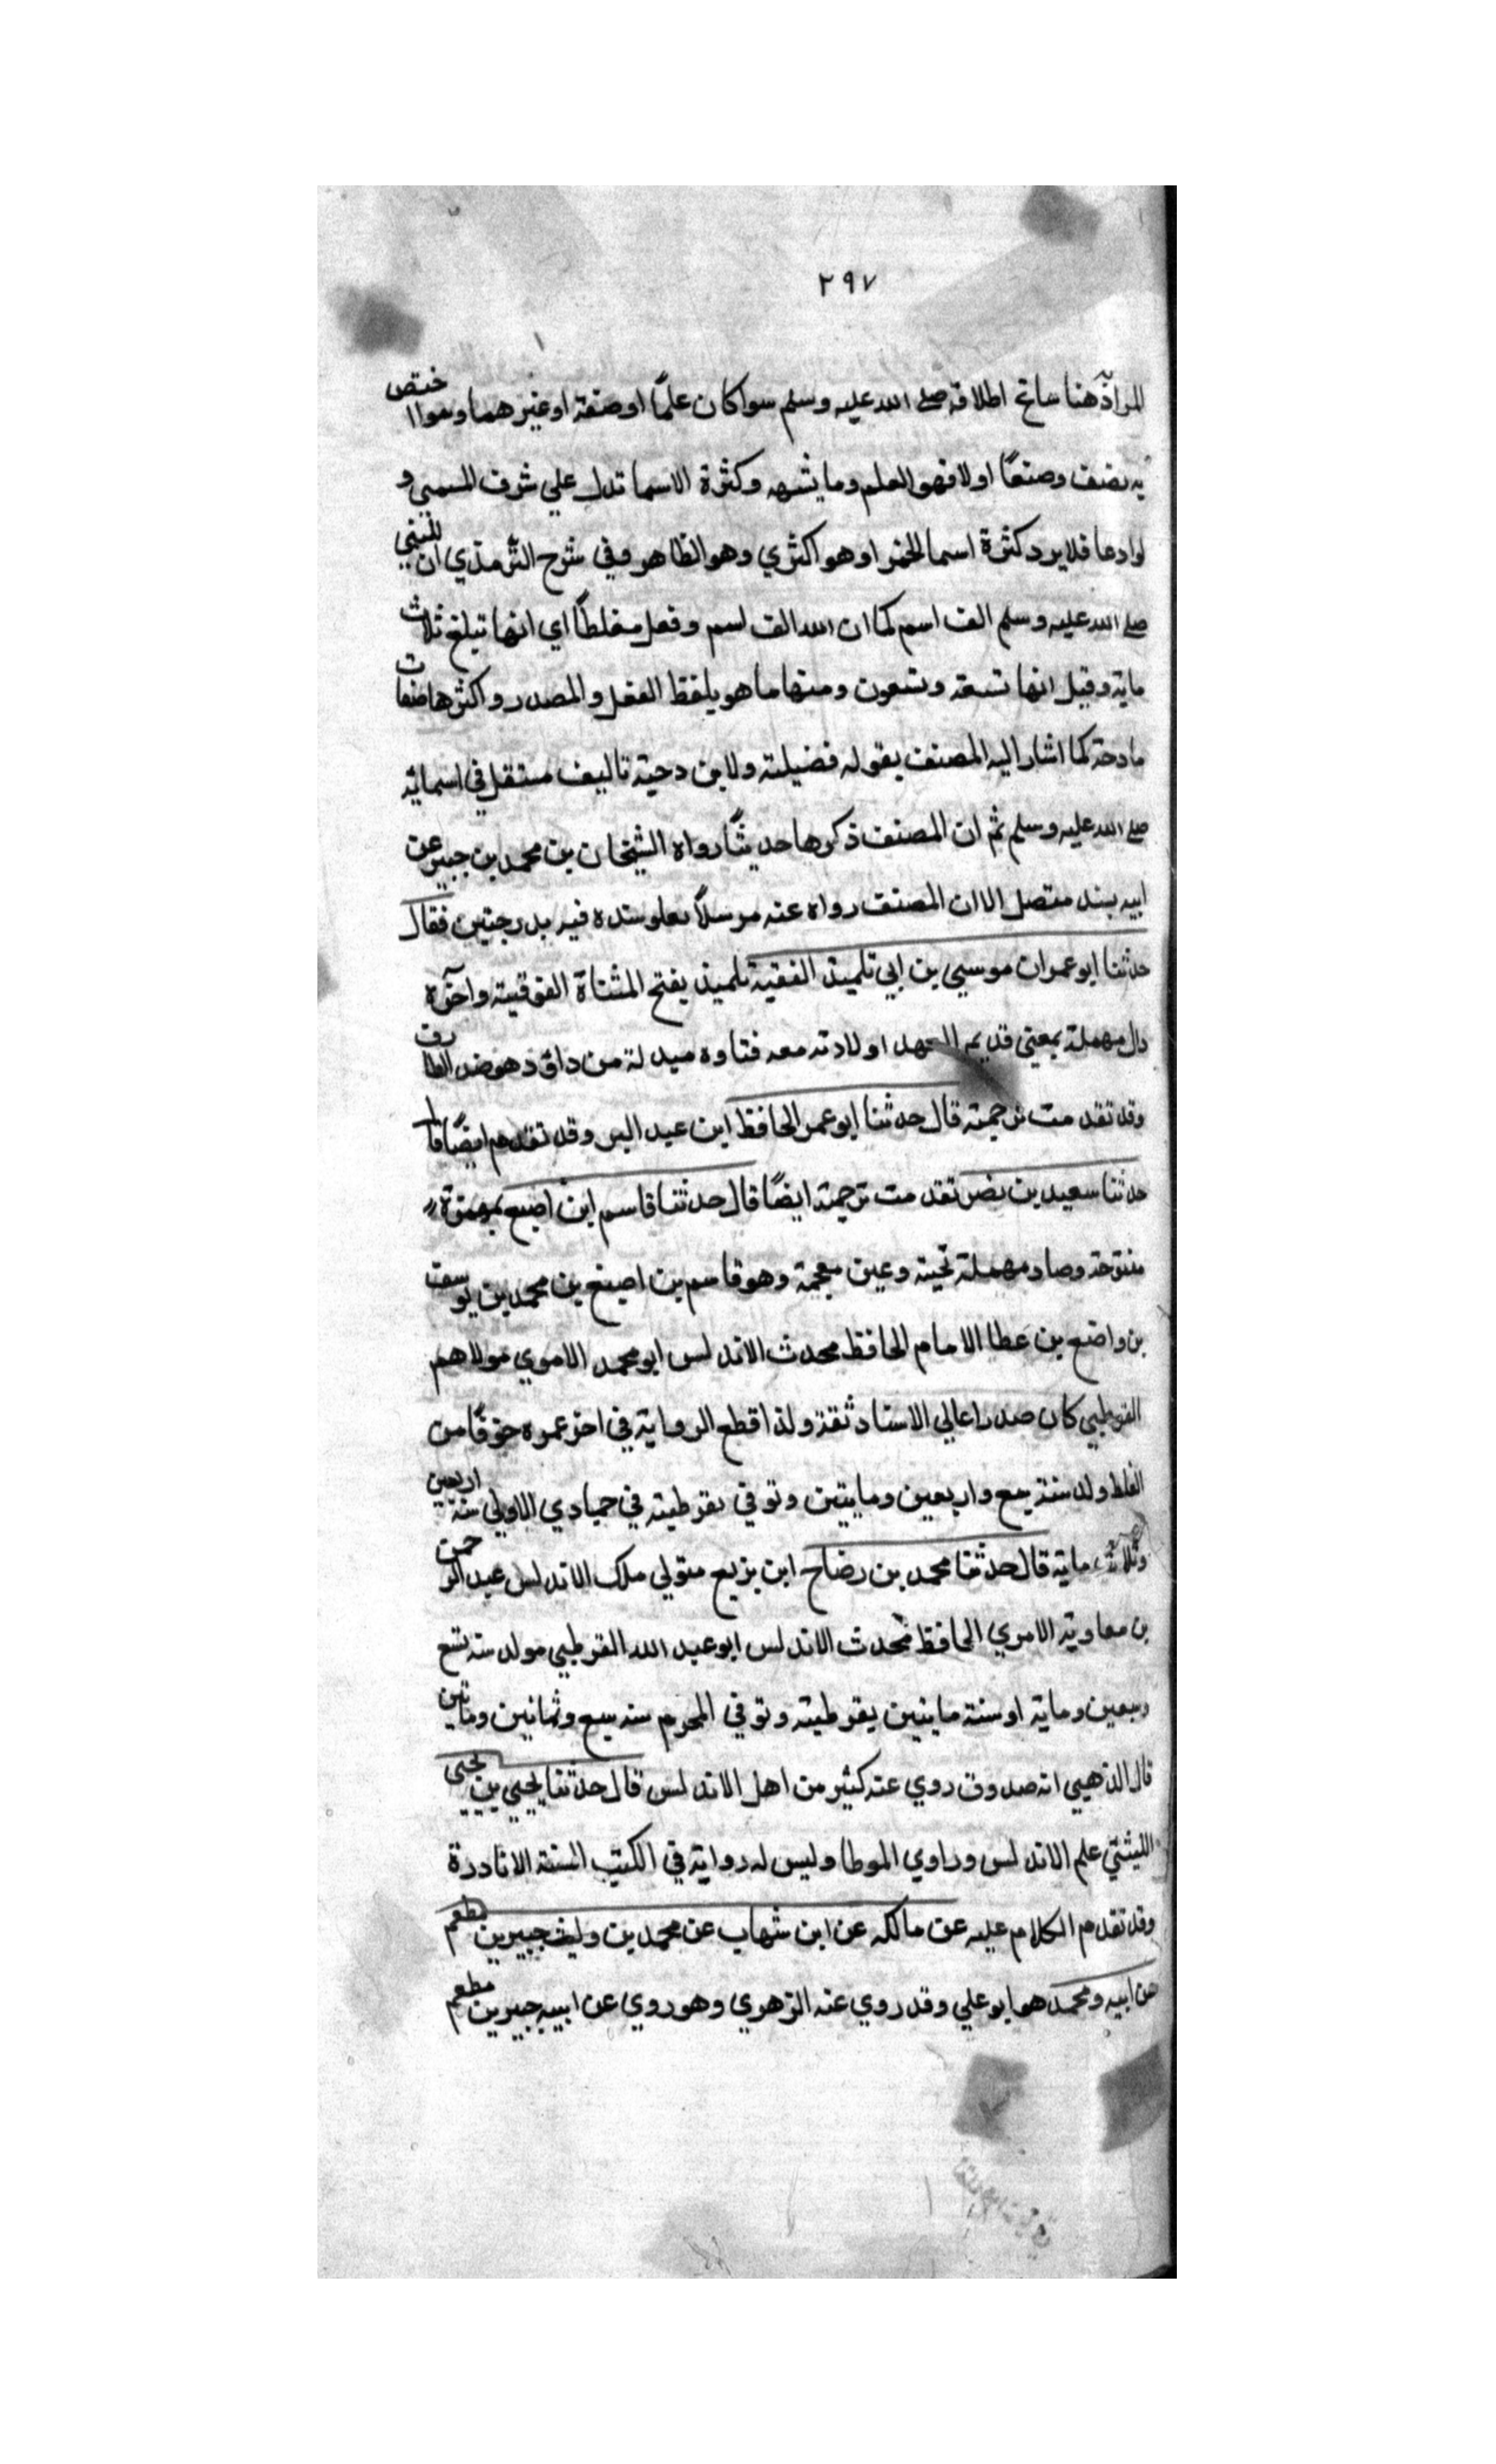 ٢٩٧
المراد هنا ساتح اطلاقه صلى الله عليه وسلم سوا كان علمًا او صفة او غيرهما وسوا اختص
به بضف وضعًا اولا فهو العلم وما يشبهه وكثرة الاسما تدل علي شرف المسمي و
لو ادعا فلا يرد كثرة اسما الخمر او هو اكثري وهو الظاهر وفي شرح الترمذي ان للنبي
صلى الله عليه وسلم الف اسم كما ان الله الف اسم وفعل مغلطاي انها تبلغ ثلاث
ماية وقيل انها تسعة وتسعون ومنها ما هو بلفظ الفعل والمصدر واكثرها صفات
مادحة كما اشار اليه المصنف بقوله فضيلته ولابن دحية تاليف مستقل في اسمائه
صلى الله عليه وسلم ثم ان المصنف ذكرها حديثًا رواه الشيخان بن محمد بن جبير عن
ابيه بسند متصل الا ان المصنف رواه عنه مرسلًا بعلو سنده فيه بدرجتين فقال
حدثنا ابو عمران موسي بن ابي تلميد الفقيه تلميذ بفتح المثناة الفوقية واخره
دال مهملة بمعني قديم العهد او لادته معه فتاوه مبدلة من داق ذهو ضد الطارف
وقد تقدمت ترجمته قال حدثنا ابو عمر الحافظ ابن عبد البر وقد تقدم ايضًا قا
حدثنا سعيد بن نصر تقدمت ترجمته ايضًا قال حدثنا قاسم ابن اصبع بهمزة
مفتوحة وصاد مهملة تحية وعين معجمة وهو قاسم بن اصبغ بن محمد بن يوسف
بن واضع بن عطا الامام الحافظ محدث الاندلس ابو محمد الاموي مولاهم
القرطبي كان صدرا عالي الاسناد ثقة ولذا قطع الرواية في اخر عمره خوفًا من
الغلط ولد سنة سبع واربعين ومايتين وتوفي بقرطبة في جمادي الاولي سنة اربعين
وثلاث ماية قال حدثنا محمد بن رضاح ابن بزيع متولي ملك الاندلس عبد الرحمن
بن معاوية الامري الحافظ محدث الاندلس ابو عبد الله القرطبي مولد سنة تسع
وسبعين وماية او سنة مايتين بقرطبة وتوفي المحرم سنه سبع وثمانين ومايتين
قال الذهبي انه صدوق روي عنه كثير من اهل الاندلس قال حدثنا يحيي بن يحيي
الليثي علم الاندلس وراوي الموطا وليس له رواية في الكتب الستة الا نادرة
وقد تقدم الكلام عليه عن مالك عن ابن شهاب عن محمد بن وليث جبير بن مطعم
عن ابيه ومحمد هو ابو علي وقد روي عنه الزهري وهو روي عن ابيه جبير بن مطعم